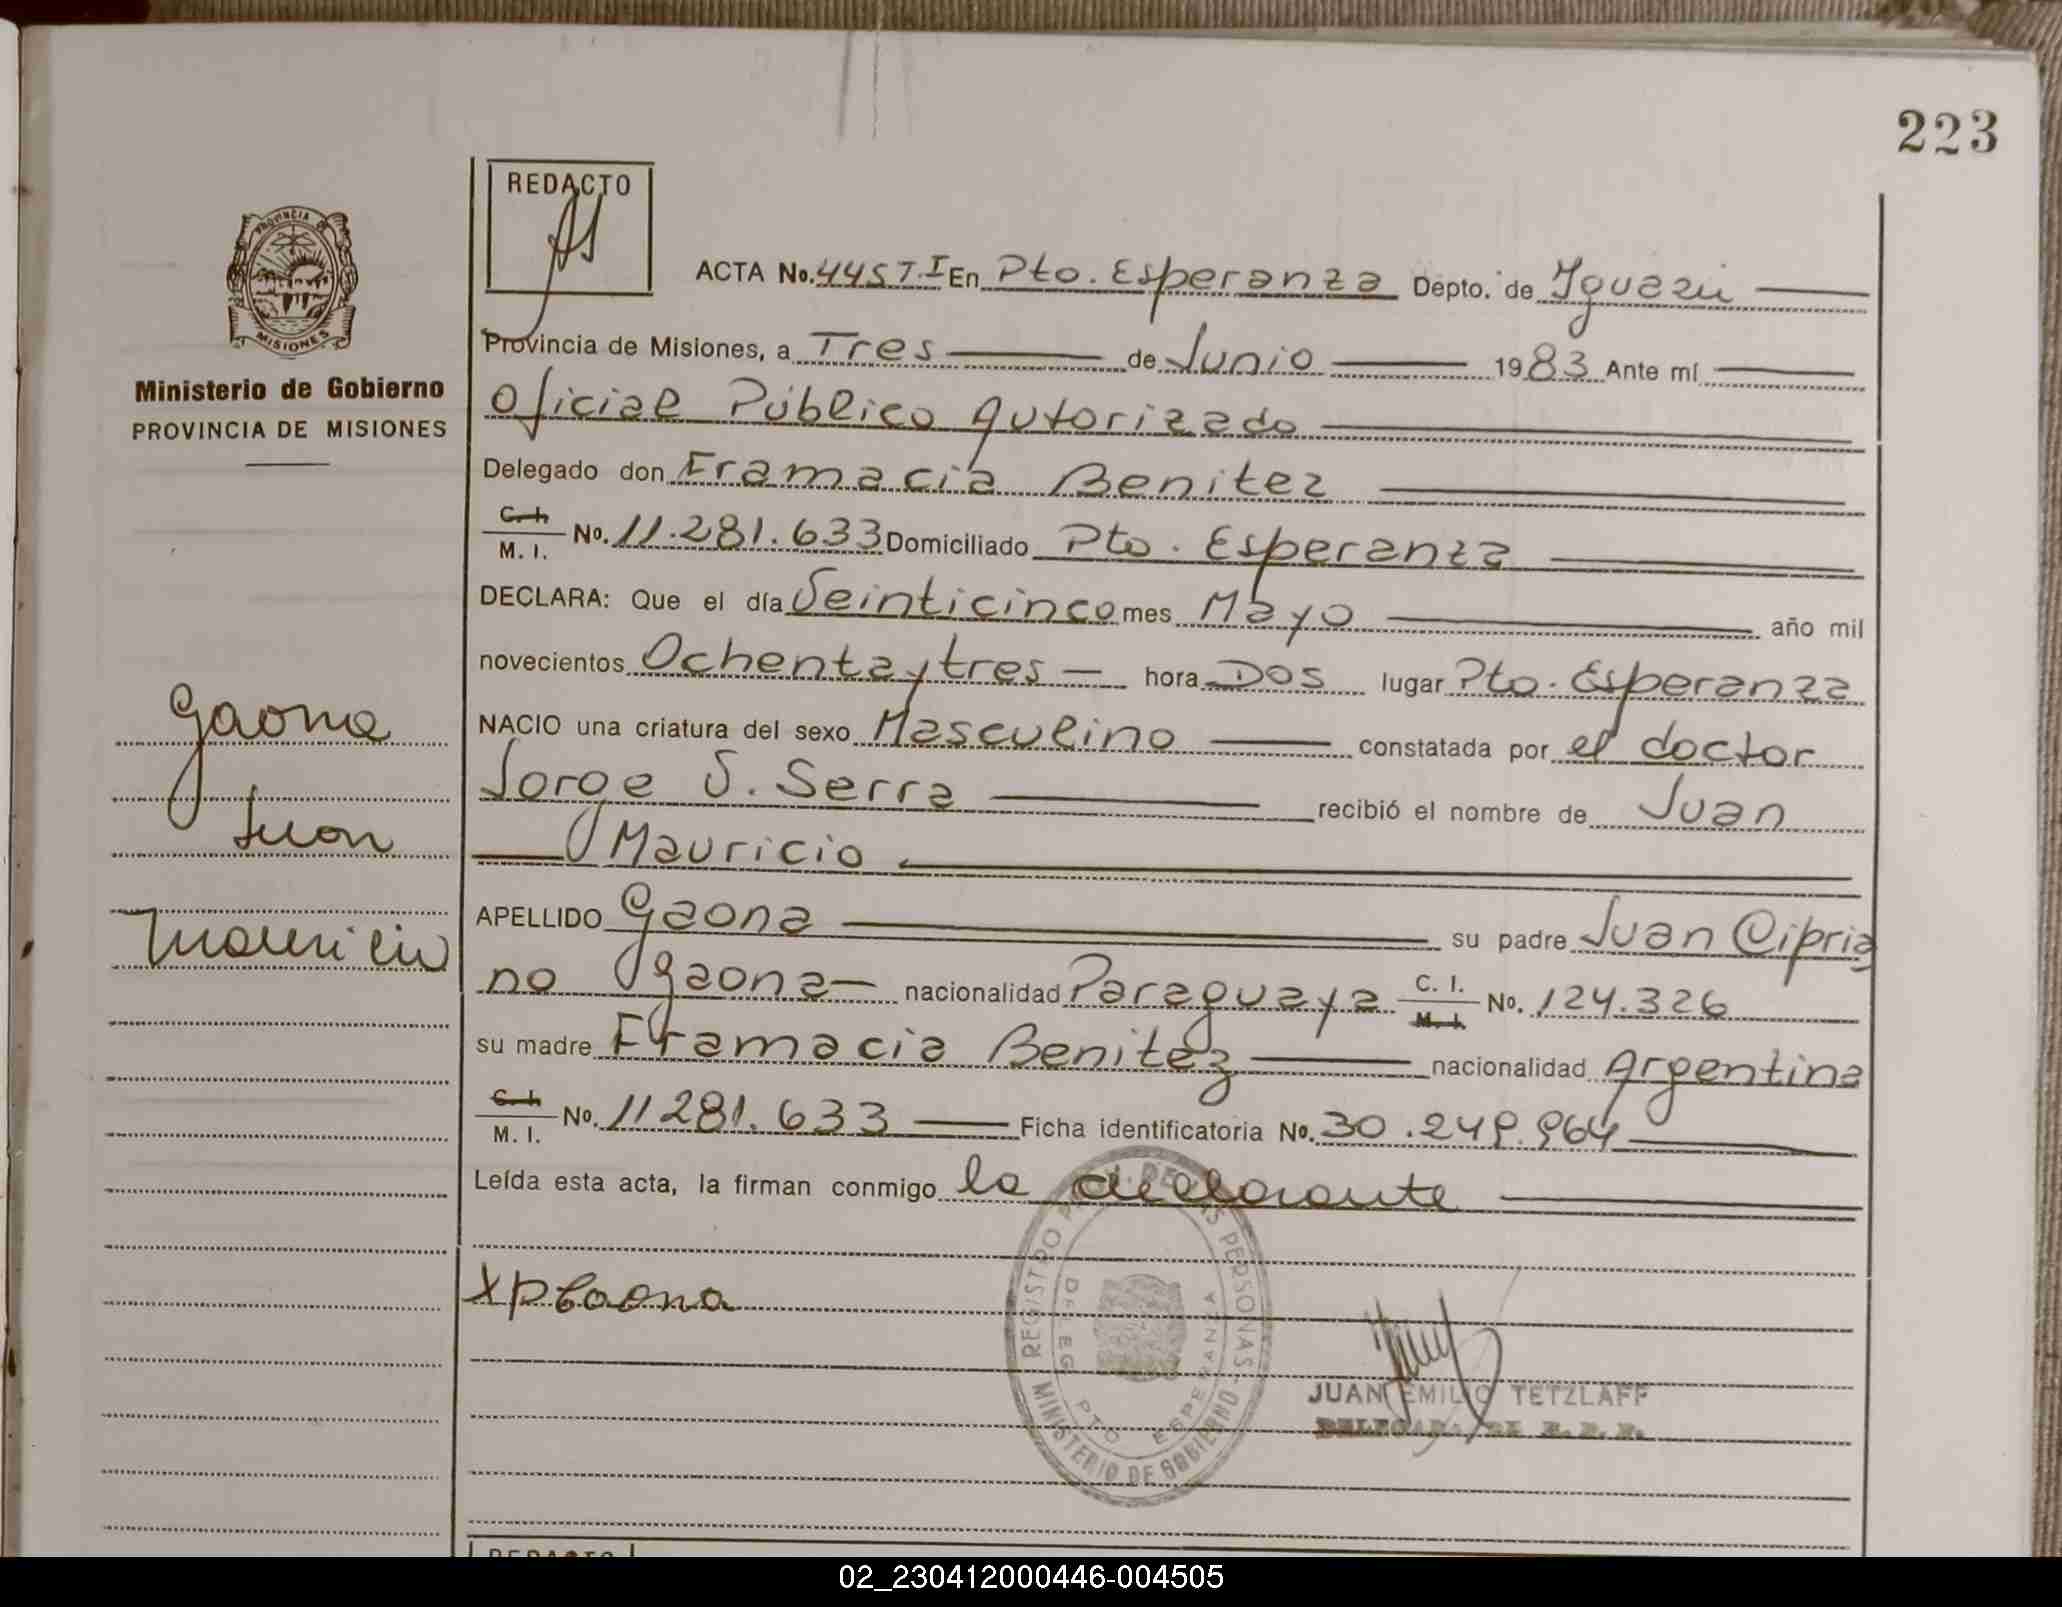 223
REDACTO
PROVINCIA
MISIONES
Ministerio de Gobierno
PROVINCIA DE MISIONES
ACTA No. 445 T.I En Pto. Esperanza Depto. de Iguazú
Provincia de Misiones, a Tres de Junio 1983 Ante mí
Oficial Público Autorizado
Delegado don Framacia Benitez
C. I. M. I. No. 11.281.633 Domiciliado Pto. Esperanza
DECLARA: Que el día Veinticinco mes Mayo año mil
novecientos Ochentaytres hora Dos lugar Pto. Esperanza
NACIO una criatura del sexo Masculino constatada por el doctor
Jorge S. Serra recibió el nombre de Juan
Mauricio
APELLIDO Gaona su padre Juan Cipria
no Gaona nacionalidad Paraguaya C. I. M. I. No. 124.326
su madre Framacia Benitez nacionalidad Argentina
C. I. M. I. No. 11281.633 Ficha identificatoria No. 30.249.964
Leída esta acta, la firman conmigo la declarante
Gaona
Juan
Mauricio
REGISTRO PROV. DE LAS PERSONAS
MINISTERIO DE GOBIERNO
DELEG. PTO. ESPERANZA
JUAN EMILIO TETZLAFF
REDACTO
02_230412000446-004505